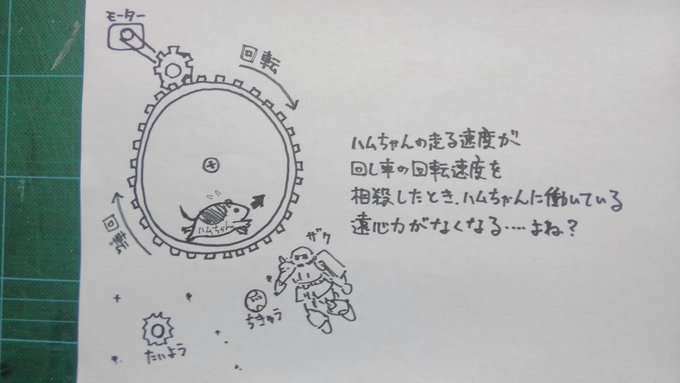 モーター
回転
ハムちゃんの走る速度が
回し車の回転速度を
相殺したとき、ハムちゃんに働いている
遠心力がなくなる‥‥よね?
回転
ハムちゃん
ザク
ちきゅう
たいよう